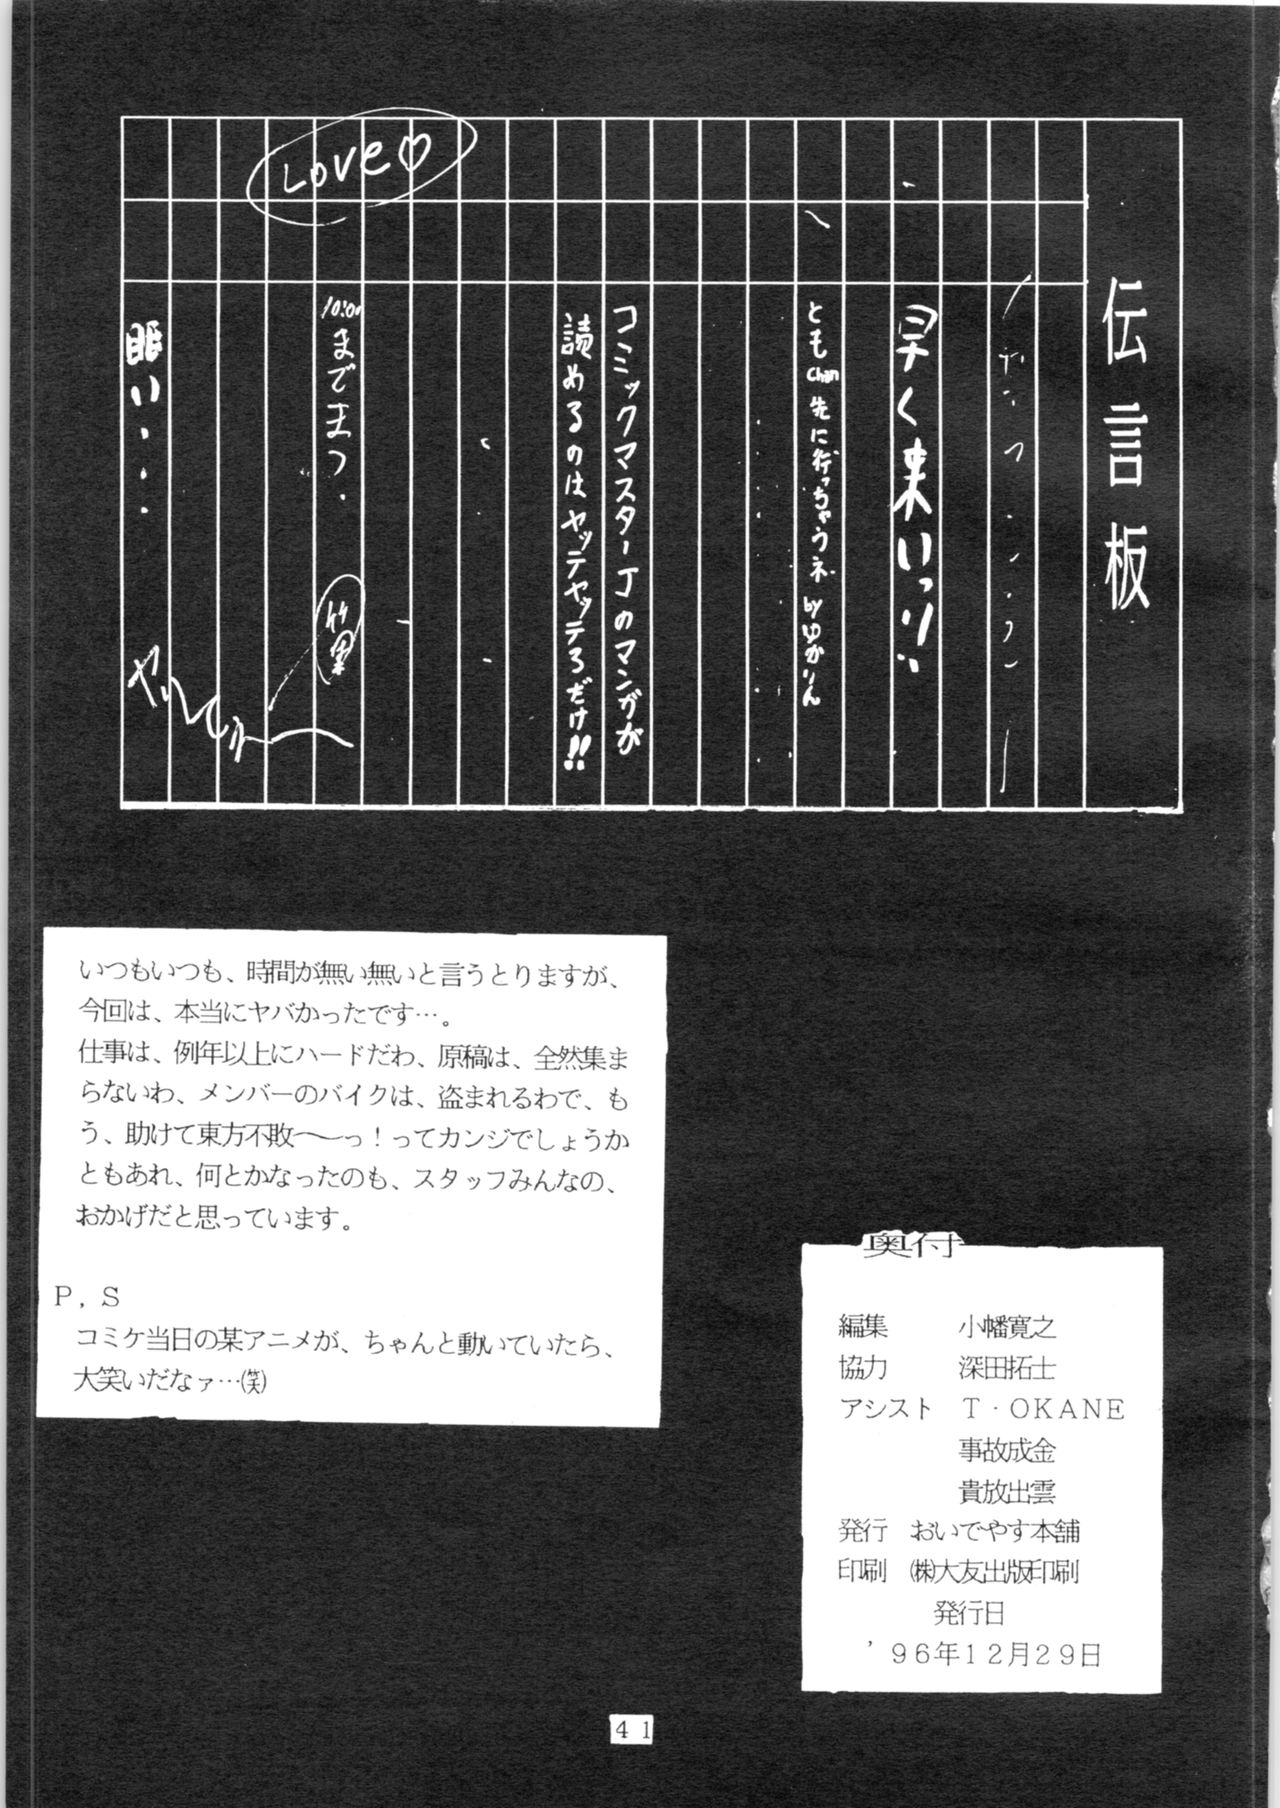 伝言板
早く来いっ!!
ともchan先に行っちゃうネ byゆかりん
コミックマスターJのマンガが
読めるのはヤッテヤッテるだけ!!
LOVE♡
10:00までまつ.
眠い・・・
いつもいつも、時間が無い無いと言うとりますが、
今回は、本当にヤバかったです…。
仕事は、例年以上にハードだわ、原稿は、全然集ま
らないわ、メンバーのバイクは、盗まれるわで、も
う、助けて東方不敗〜〜っ！ってカンジでしょうか
ともあれ、何とかなったのも、スタッフみんなの、
おかげだと思っています。
P，S
コミケ当日の某アニメが、ちゃんと動いていたら、
大笑いだなァ…(笑)
奥付
編集　小幡寛之
協力　深田拓士
アシスト　T・OKANE
事故成金
貴放出雲
発行　おいでやす本舗
印刷　㈱大友出版印刷
発行日
’96年12月29日
41